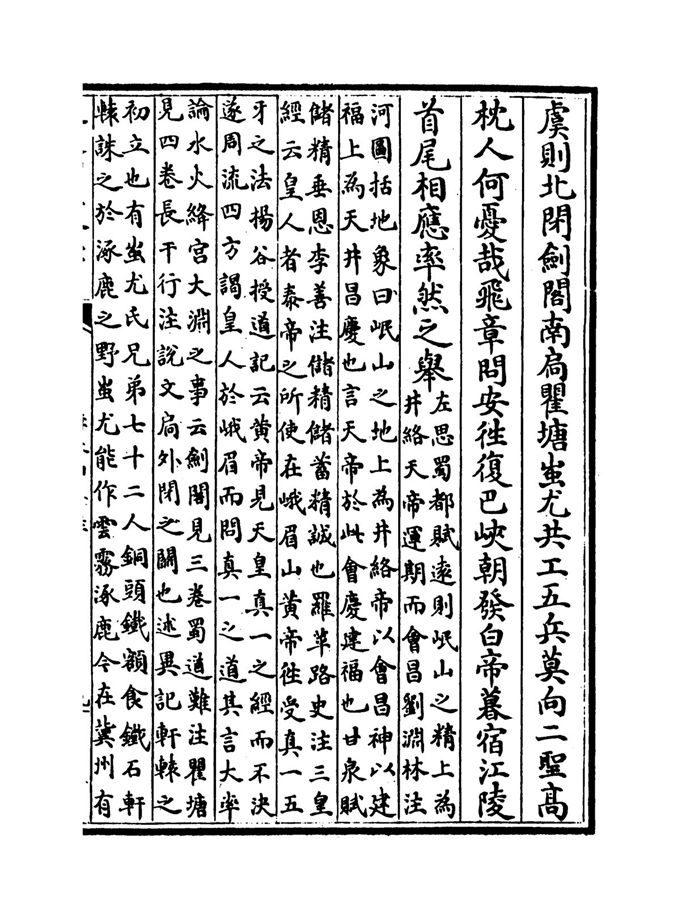 虞則北閉劍閣南扃瞿塘蚩尤共工五兵莫向二聖高
枕人何憂哉飛章問安徃復巴峽朝發白帝暮宿江陵
首尾相應率然之舉
左思蜀都賦逺則岷山之精上為
井絡天帝運期而會昌劉淵林注
河圖括地象曰岷山之地上為井絡帝以會昌神以建
福上為天井昌慶也言天帝於此會慶建福也甘泉賦
儲精垂恩李善注儲精儲蓄精誠也羅苹路史注三皇
經云皇人者泰帝之所使在峨眉山黄帝徃受真一五
牙之法揚谷授道記云黄帝見天皇真一之經而不決
遂周流四方謁皇人於峨眉而問真一之道其言大率
論水火絳宮大淵之事云劍閣見三卷蜀道難注瞿塘
見四卷長干行注說文扃外閉之關也述異記軒轅之
初立也有蚩尤氏兄弟七十二人銅頭鐵額食鐵石軒
轅誅之於涿鹿之野蚩尤能作雲霧涿鹿今在冀州有